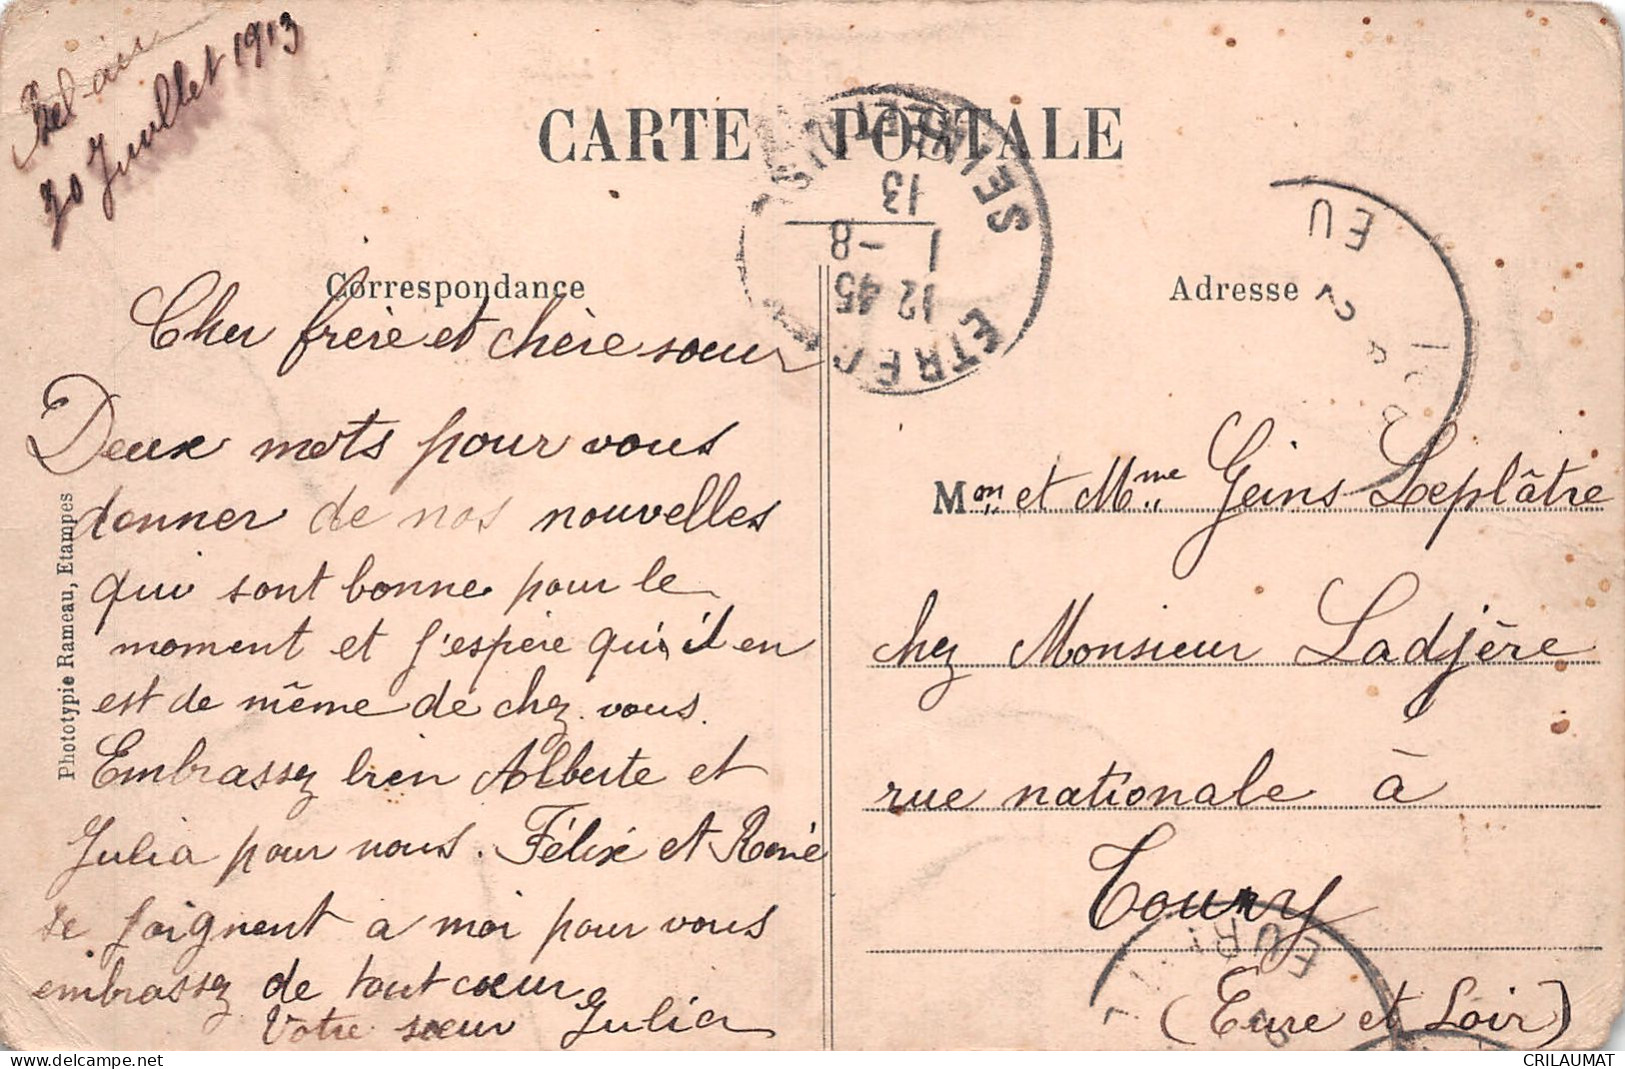 Bel-air
30 Juillet 1913
CARTE POSTALE
Correspondance
Cher frère et chère sœur
Deux mots pour vous
donner de nos nouvelles
qui sont bonne pour le
moment et j'espère qui il en
est de même de chez vous.
Embrassez bien Alberte et
Julia pour nous. Félix et René
se joignent a moi pour vous
embrassez de tout cœur
Votre sœur Julia
Phototypie Rameau, Etampes
SEINE-ET-OISE
13
1 -8
12 45
ETRECHY
Adresse
EU
Mon et Mme Geins Leplâtre
chez Monsieur Ladjère
rue nationale à
Toury
(Eure et Loir)
EUR
CRILAUMAT